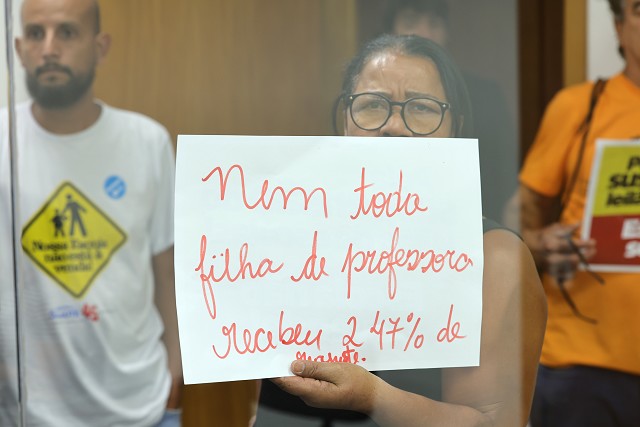 Nem toda
filha de professora
recebeu 247% de
Nossa Escola
não está à
venda!